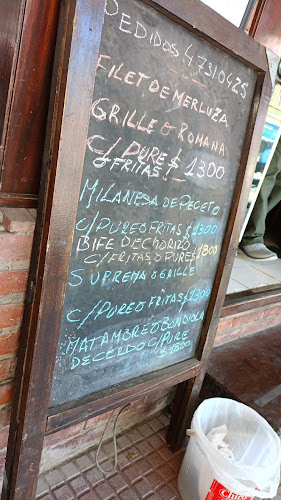 PEDIDOS 47310425
FILET DE MERLUZA
GRILLE O ROMANA
C/PURE $ 1300
O FRITAS!
MILANESA DE PECETO
C/PURE O FRITAS $ 1300
BIFE DE CHORIZO
C/FRITAS, O PURE $ 1800
SUPREMA O GRILLE
C/PURE O FRITAS $ 1300
MATAMBRE O BONDIOLA
DE CERDO C/PURE
$ 1800